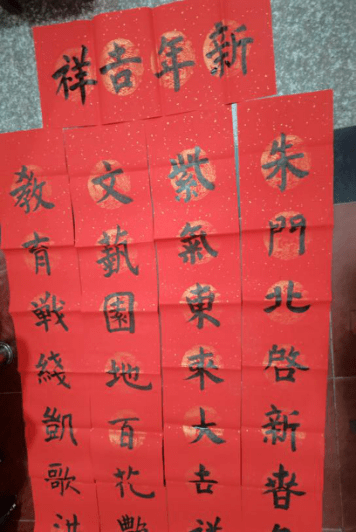 新年吉祥
朱門北啓新春
紫氣東来大吉祥
文藝園地百花
教育戦綫凱歌